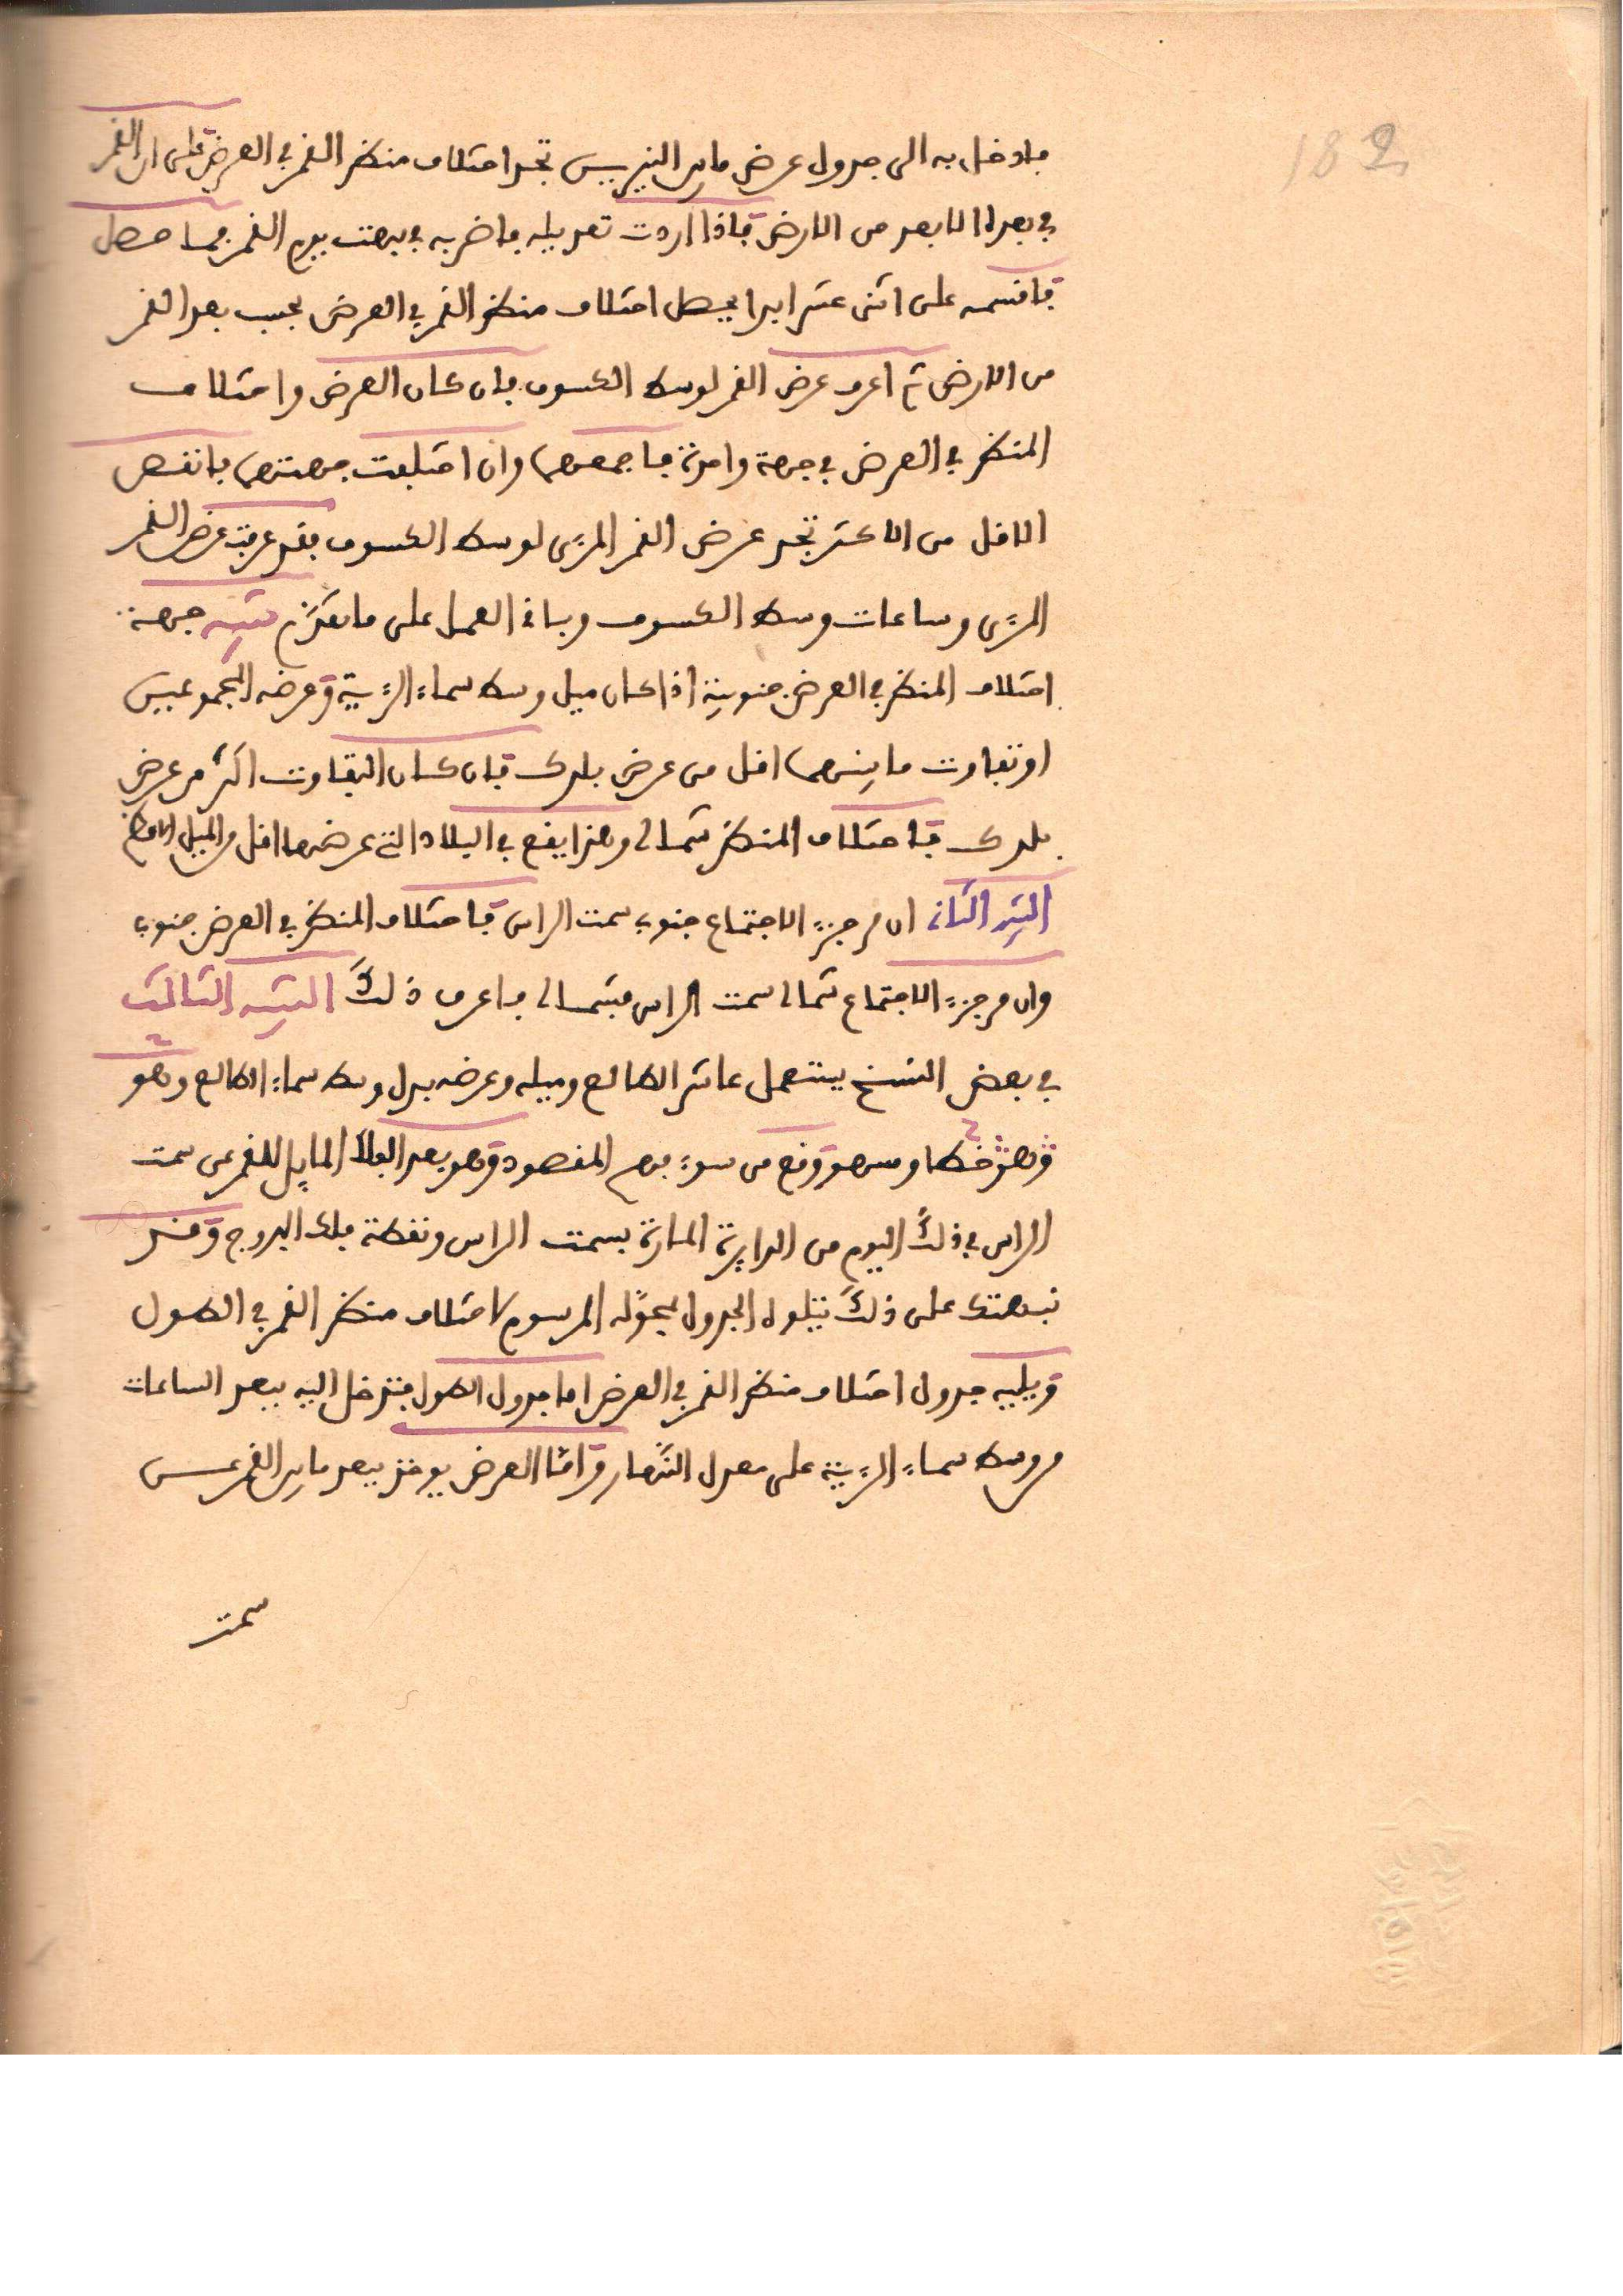 182
فادخل به الى جدول عرض ما بين النيرين تجد اختلاف منظر القمر في العرض على ان القمر
في بعده الابعد من الارض فاذا اردت تعديله فاضربه في بهت يوم القمر فما حصل
فاقسمه على اثنى عشر ابدا يحصل اختلاف منظر القمر في العرض بحسب بعد القمر
من الارض ثم اعرف عرض القمر لوسط الكسوف فان كان العرض واختلاف
المنظر في العرض في جهة واحدة فاجمعهما وان اختلفت جهتهما فانقص
الاقل من الاكثر تجد عرض القمر المرءى لوسط الكسوف فقد عرفت عرض القمر
المرءى وساعات وسط الكسوف وباقى العمل على ما تقدم تنبيه جهة
اختلاف المنظر في العرض جنوبية اذا كان ميل وسط سماء الرءية وعرضه المجموعين
او تفاوت ما بينهما اقل من عرض بلدك فان كان التفاوت اكثر من عرض
بلدك فاختلاف المنظر شمالى وهذا يقع في البلاد التى عرضها اقل من الميل الاعظم
التنبيه الثانى ان مر جزء الاجتماع جنوب سمت الراس فاختلاف المنظر في العرض جنوب
وان مر جزء الاجتماع شمالى سمت الراس فشمالى فاعرف ذلك التنبيه الثالث
في بعض النسخ يستعمل عاشر الطالع وميله وعرضه بدل وسط سماء الطالع وهو
وهو خطا وسهو وقع من سوء فهم المقصود وهو بعد الفلك المايل للقمر عن سمت
الراس في ذلك اليوم من الدايرة المارة بسمت الراس ونقطة فلك البروج وقد
نبهتك على ذلك يتلوه الجدول بحوله المرسوم لاختلاف منظر القمر في الطول
ويليه جدول اختلاف منظر القمر في العرض اما جدول الطول فتدخل اليه ببعد الساعات
من وسط سماء الرءية على معدل النهار واما العرض يوخذ ببعد ماير القمر عن
سمت